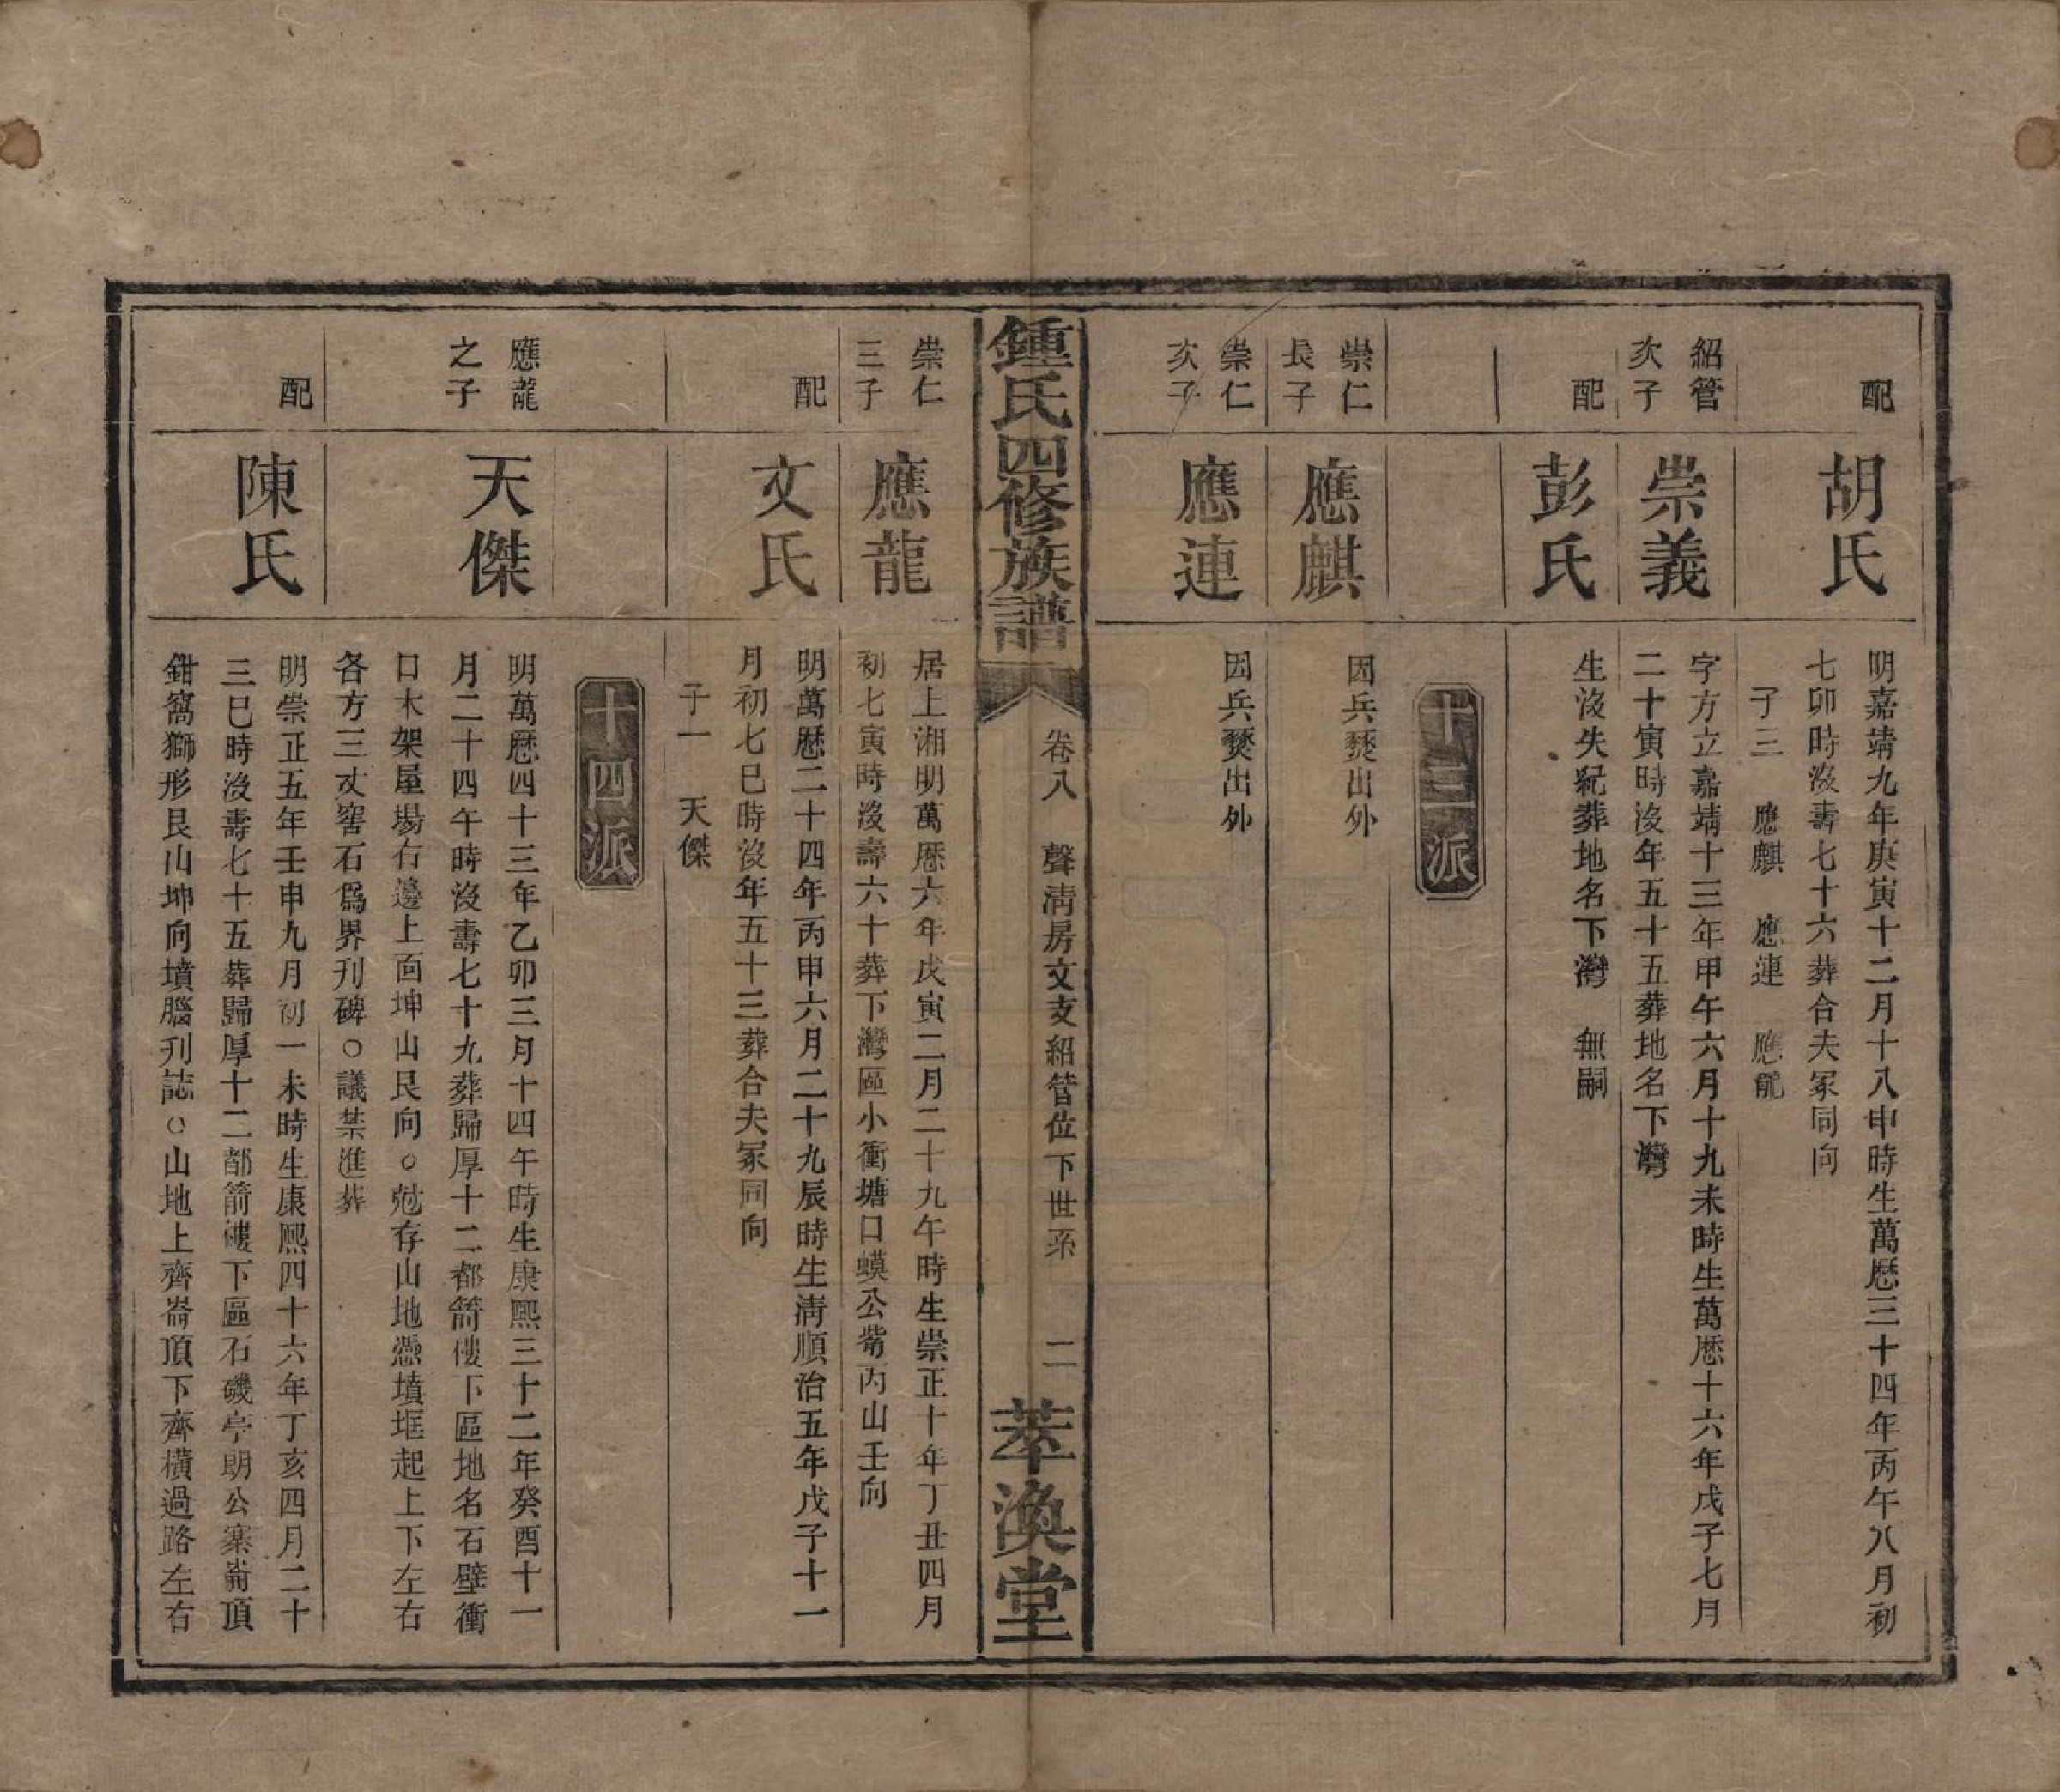 配
胡氏
明嘉靖九年庚寅十二月十八申時生萬厯三十四年丙午八月初
七卯時沒壽七十六葬合夫冢同向
子三　應麒　應連　應龍
紹管
次子
崇義
字方立嘉靖十三年甲午六月十九未時生萬厯十六年戊子七月
二十寅時沒年五十五葬地名下灣
配
彭氏
生沒失紀葬地名下灣　無嗣
十三派
崇仁
長子
應麒
因兵燹出外
崇仁
次子
應連
因兵燹出外
鍾氏四修族譜
卷八　聲清房文支紹管位下世系　二
萃渙堂
崇仁
三子
應龍
居上湘明萬厯六年戊寅二月二十九午時生崇正十年丁丑四月
初七寅時沒壽六十葬下灣區小衝塘口蟆公背丙山壬向
配
文氏
明萬厯二十四年丙申六月二十九辰時生清順治五年戊子十一
月初七巳時沒年五十三葬合夫冢同向
子一　天傑
十四派
應龍
之子
天傑
明萬厯四十三年乙卯三月十四午時生康熙三十二年癸酉十一
月二十四午時沒壽七十九葬歸厚十二都箭樓下區地名石壁衝
口木架屋場右邊上面坤山艮向○尅存山地憑墳堆起上下左右
各方三丈窖石爲界刊碑○議禁進葬
配
陳氏
明崇正五年壬申九月初一未時生康熙四十六年丁亥四月二十
三巳時沒壽七十五葬歸厚十二都箭樓下區石磯亭明公寨崙頂
鉗窩獅形艮山坤向墳腦刊誌○山地上齊崙頂下齊橫過路左右